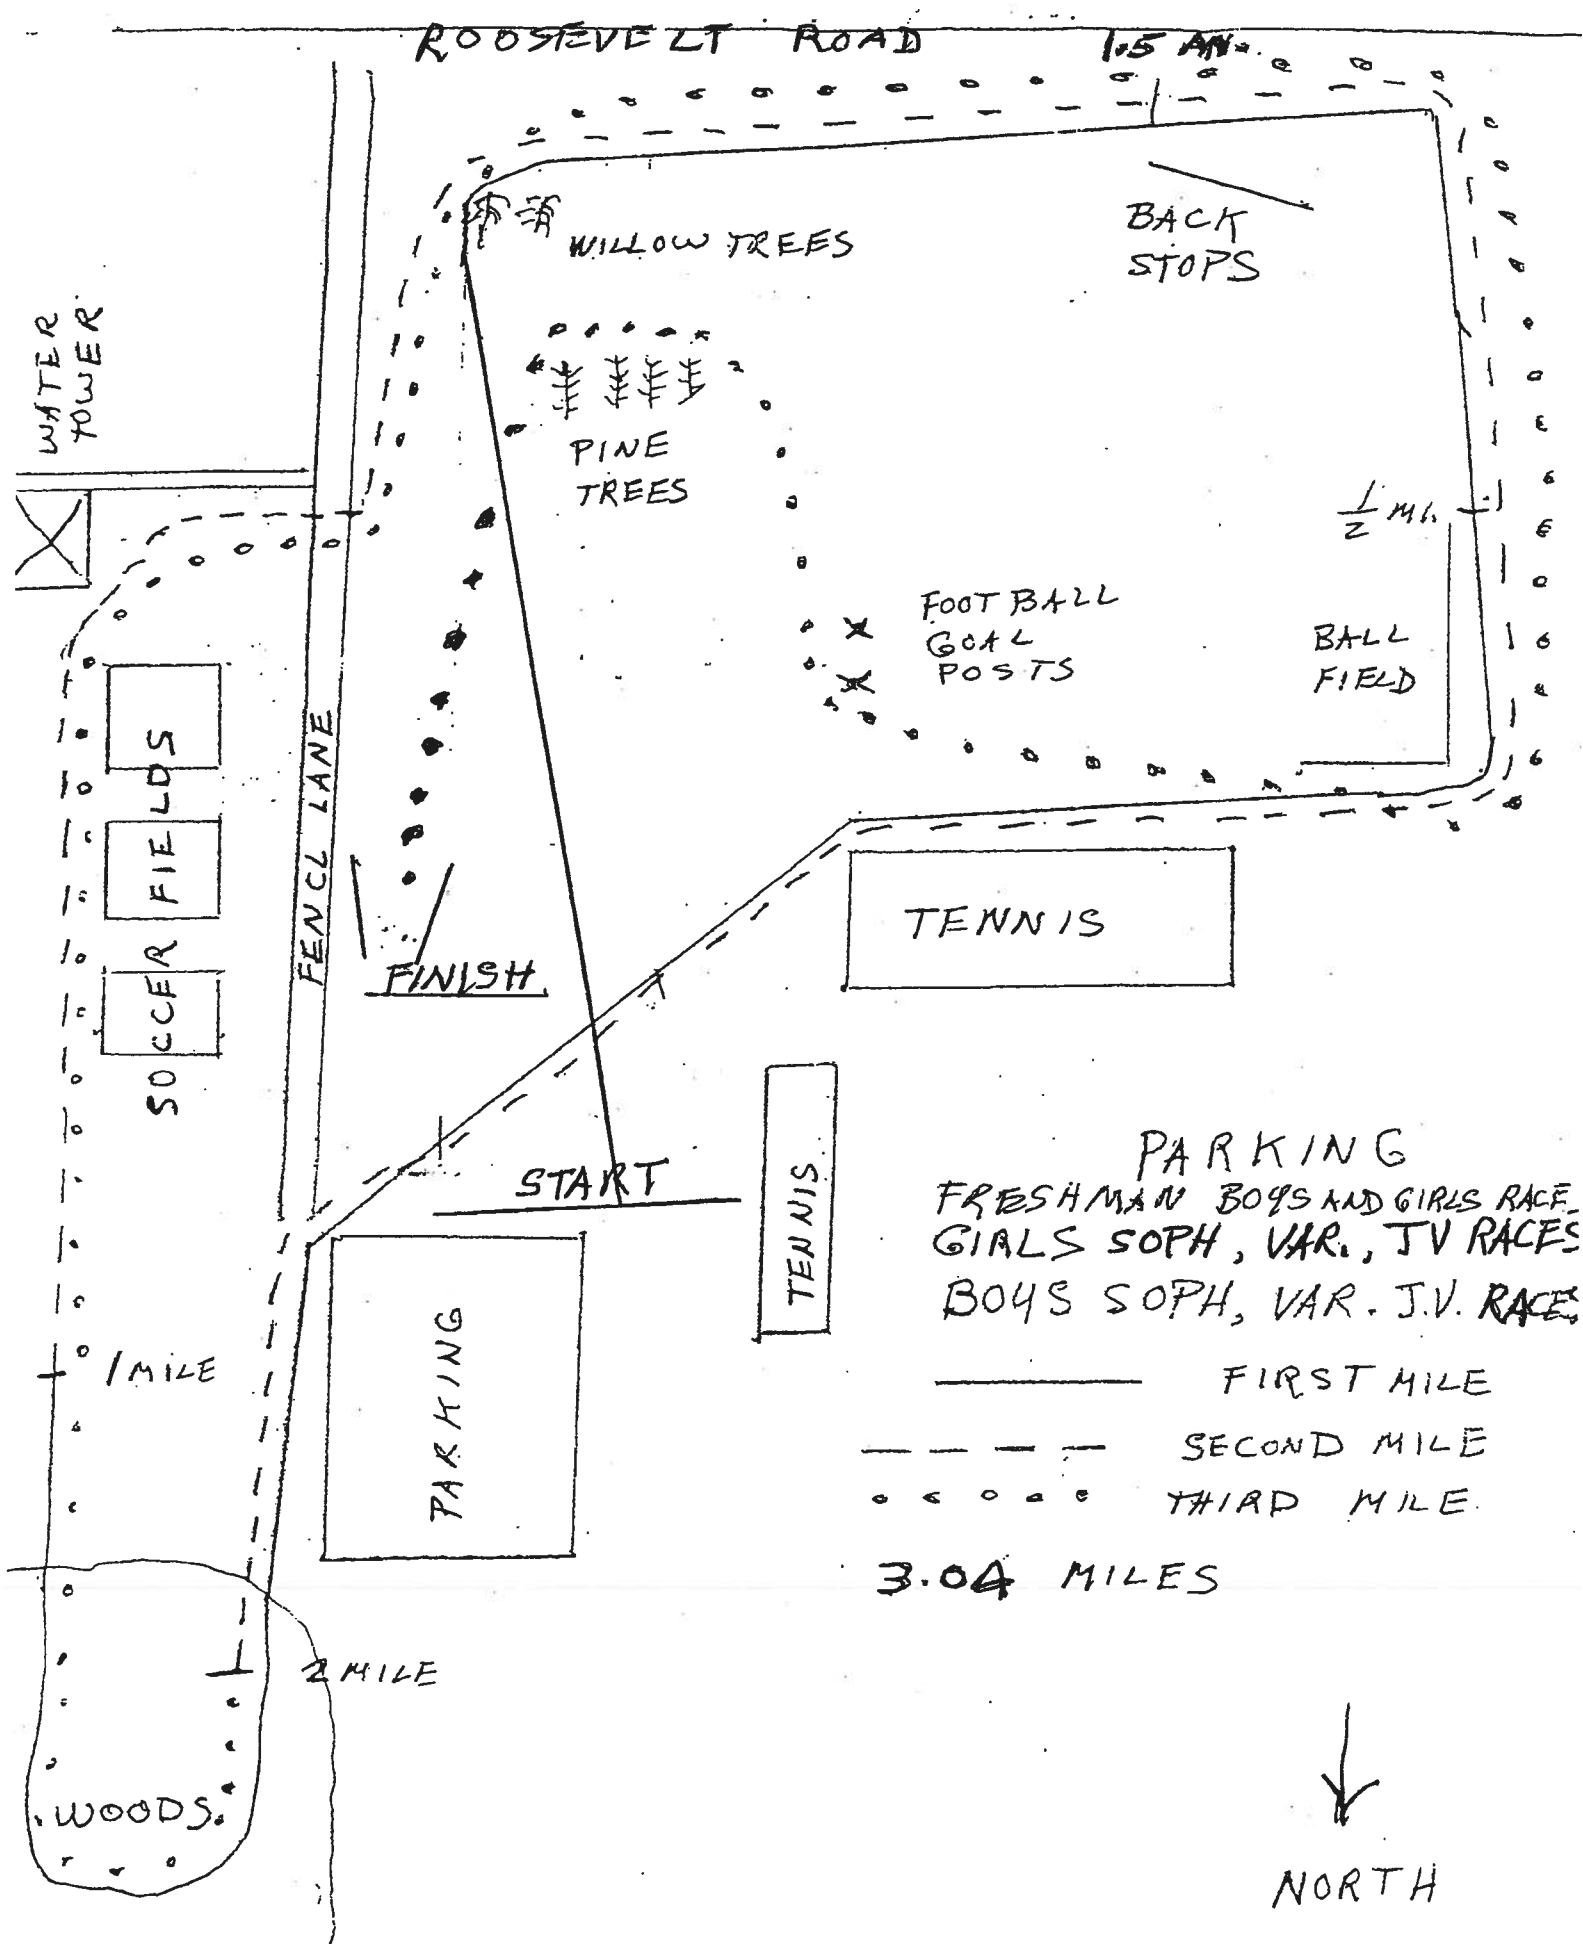 ROOSEVELT ROAD
WILLOW TREES
BACK
STOPS
WATER
TOWER
PINE
TREES
1/2 MI.
FOOTBALL
GOAL
POSTS
BALL
FIELD
SOCCER FIELDS
FENCL LANE
FINISH
TENNIS
START
TENNIS
PARKING
PARKING
FRESHMAN BOYS AND GIRLS RACE
GIRLS SOPH, VAR., JV RACES
BOYS SOPH, VAR. J.V. RACES
1 MILE
FIRST MILE
SECOND MILE
THIRD MILE
3.04 MILES
2 MILE
WOODS
NORTH